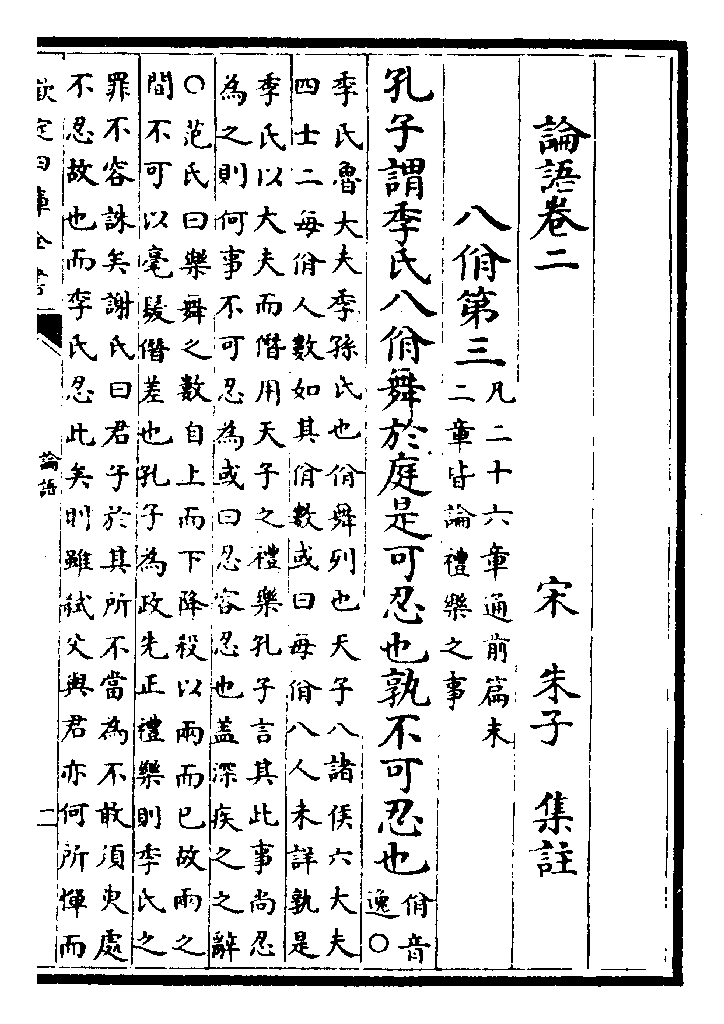 論語卷二
宋 朱子 集註
八佾第三
凡二十六章通前篇末
二章皆論禮樂之事
孔子謂季氏八佾舞於庭是可忍也孰不可忍也
佾音
逸○
季氏魯大夫季孫氏也佾舞列也天子八諸侯六大夫
四士二每佾人數如其佾數或曰每佾八人未詳孰是
季氏以大夫而僭用天子之禮樂孔子言其此事尚忍
為之則何事不可忍為或曰忍容忍也蓋深疾之之辭
○范氏曰樂舞之數自上而下降殺以兩而已故兩之
間不可以毫髮僭差也孔子為政先正禮樂則季氏之
罪不容誅矣謝氏曰君子於其所不當為不敢須臾處
不忍故也而季氏忍此矣則雖弒父與君亦何所憚而
欽定四庫全書
論語
二